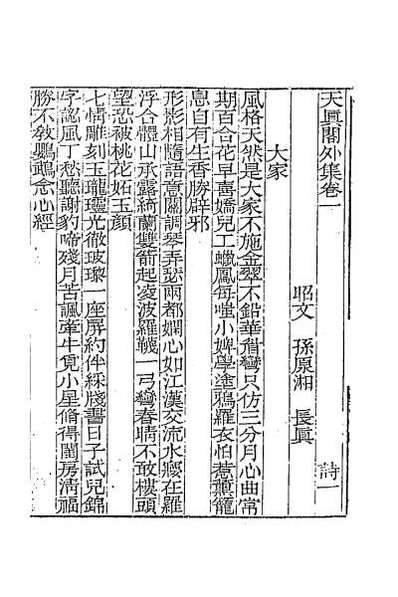 天真閣外集卷一
昭文　孫原湘　長真　詩一
大家
風格天然是大家不施金翠不鉛華眉彎只仿三分月心曲常
期百合花早喜嬌兒工蠟鳳每嗤小婢學塗鴉羅衣怕惹薰籠
息自有生香勝辟邪
形影相隨語意關調琴弄瑟兩都嫻心如江漢交流水癡在羅
浮合體山承露綺蘭雙箭起凌波羅韈一弓彎春晴不敢樓頭
望恐被桃花妬玉顏
七情雕刻玉瓏瓏光徹玻瓈一座屏約伴綵牋書日子試兒錦
字認風丁愁聽謝豹啼殘月苦諷牽牛覓小星脩得閨房淸福
勝不教鸚鵡念心經